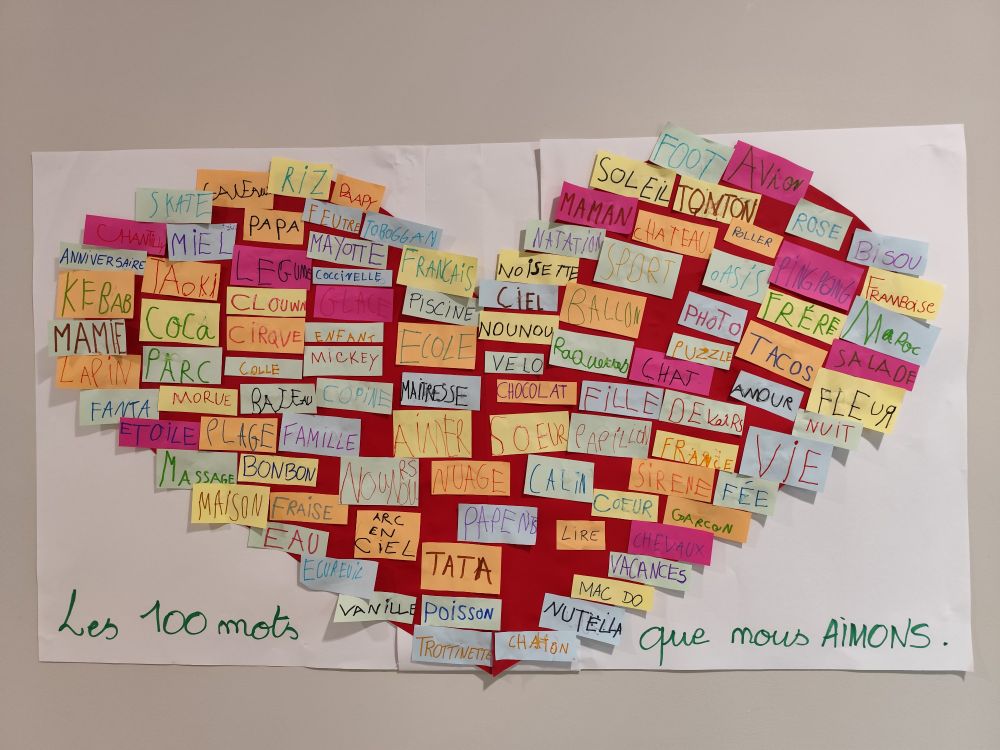 FOOT
AVION
SOLEIL
TONTON
RIZ
PAPY
SKATE
MAMAN
ROSE
PAPA
FEUTRE
TOBOGGAN
CHATEAU
ROLLER
BISOU
CHANTILLY
MIEL
MAYOTTE
NATATION
ANNIVERSAIRE
TAOKI
LEGUME
COCCINELLE
FRANCAIS
NOISETTE
SPORT
OASIS
PINGPONG
FRAMBOISE
KEBAB
CLOUWN
GLACE
PISCINE
CIEL
BALLON
PHOTO
FRÉRE
MAROC
MAMIE
COCA
CIRQUE
ENFANT
ECOLE
NOUNOU
PUZZLE
TACOS
SALADE
LAPIN
PARC
COLLE
MICKEY
VELO
CHAT
FANTA
MORUE
BATEAU
COPINE
MAITRESSE
CHOCOLAT
FILLE
DEHORS
AMOUR
FLEUR
ETOILE
PLAGE
FAMILLE
AIMER
SOEUR
PAPILLON
FRANCE
VIE
NUIT
MASSAGE
BONBON
NOUNOURS
NUAGE
CALIN
SIRENE
FÉE
MAISON
FRAISE
ARC
EN
CIEL
LIRE
COEUR
GARCON
EAU
CHEVAUX
ECUREUIL
TATA
VACANCES
MAC DO
VANILLE
POISSON
NUTELLA
TROTTINETTE
CHATON
Les 100 mots que nous AiMONS.